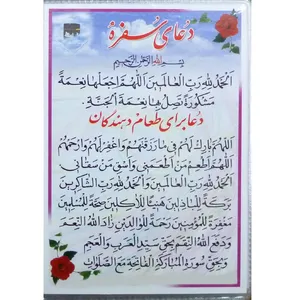 دعای سفره
بِسْمِ اللهِ الرَّحْمنِ الرَّحِیمِ
اَلْحَمْدُ لِلّهِ رَبِّ الْعالَمینَ اَللّهُمَّ اجْعَلْها نِعْمَةً
مَشْکُورَةً تَصِلُ بِها نِعْمَةَ الْجَنَّةِ.
دعا برای طعام دهندگان
اَللّهُمَّ بارِكْ لَهُمْ فی ما رَزَقْتَهُمْ وَاغْفِرْ لَهُمْ وَارْحَمْهُمْ
اَللّهُمَّ اَطْعِمْ مَنْ اَطْعَمَنی وَاسْقِ مَنْ سَقانی
اَلْحَمْدُ لِلّهِ رَبِّ الْعالَمینَ وَالْحَمْدُ لِلّهِ الشّاکِرینَ
بَرَکَةً لِلْباذِلینَ هَنیئاً لِلْآکِلینَ صِحَّةً لِلْمُسْلِمینَ
مَغْفِرَةً لِلْمُؤْمِنینَ رَحْمَةً لِلْوالِدَیْنِ زادَ اللهُ النِّعَمَ
وَدَفَعَ اللهُ النِّقَمَ بِحَقِّ سَیِّدِ الْعَرَبِ وَالْعَجَمِ
وَبِحَقِّ سُورَةِ الْمُبارَکَةِ الْفاتِحَةِ مَعَ الصَّلَواتِ